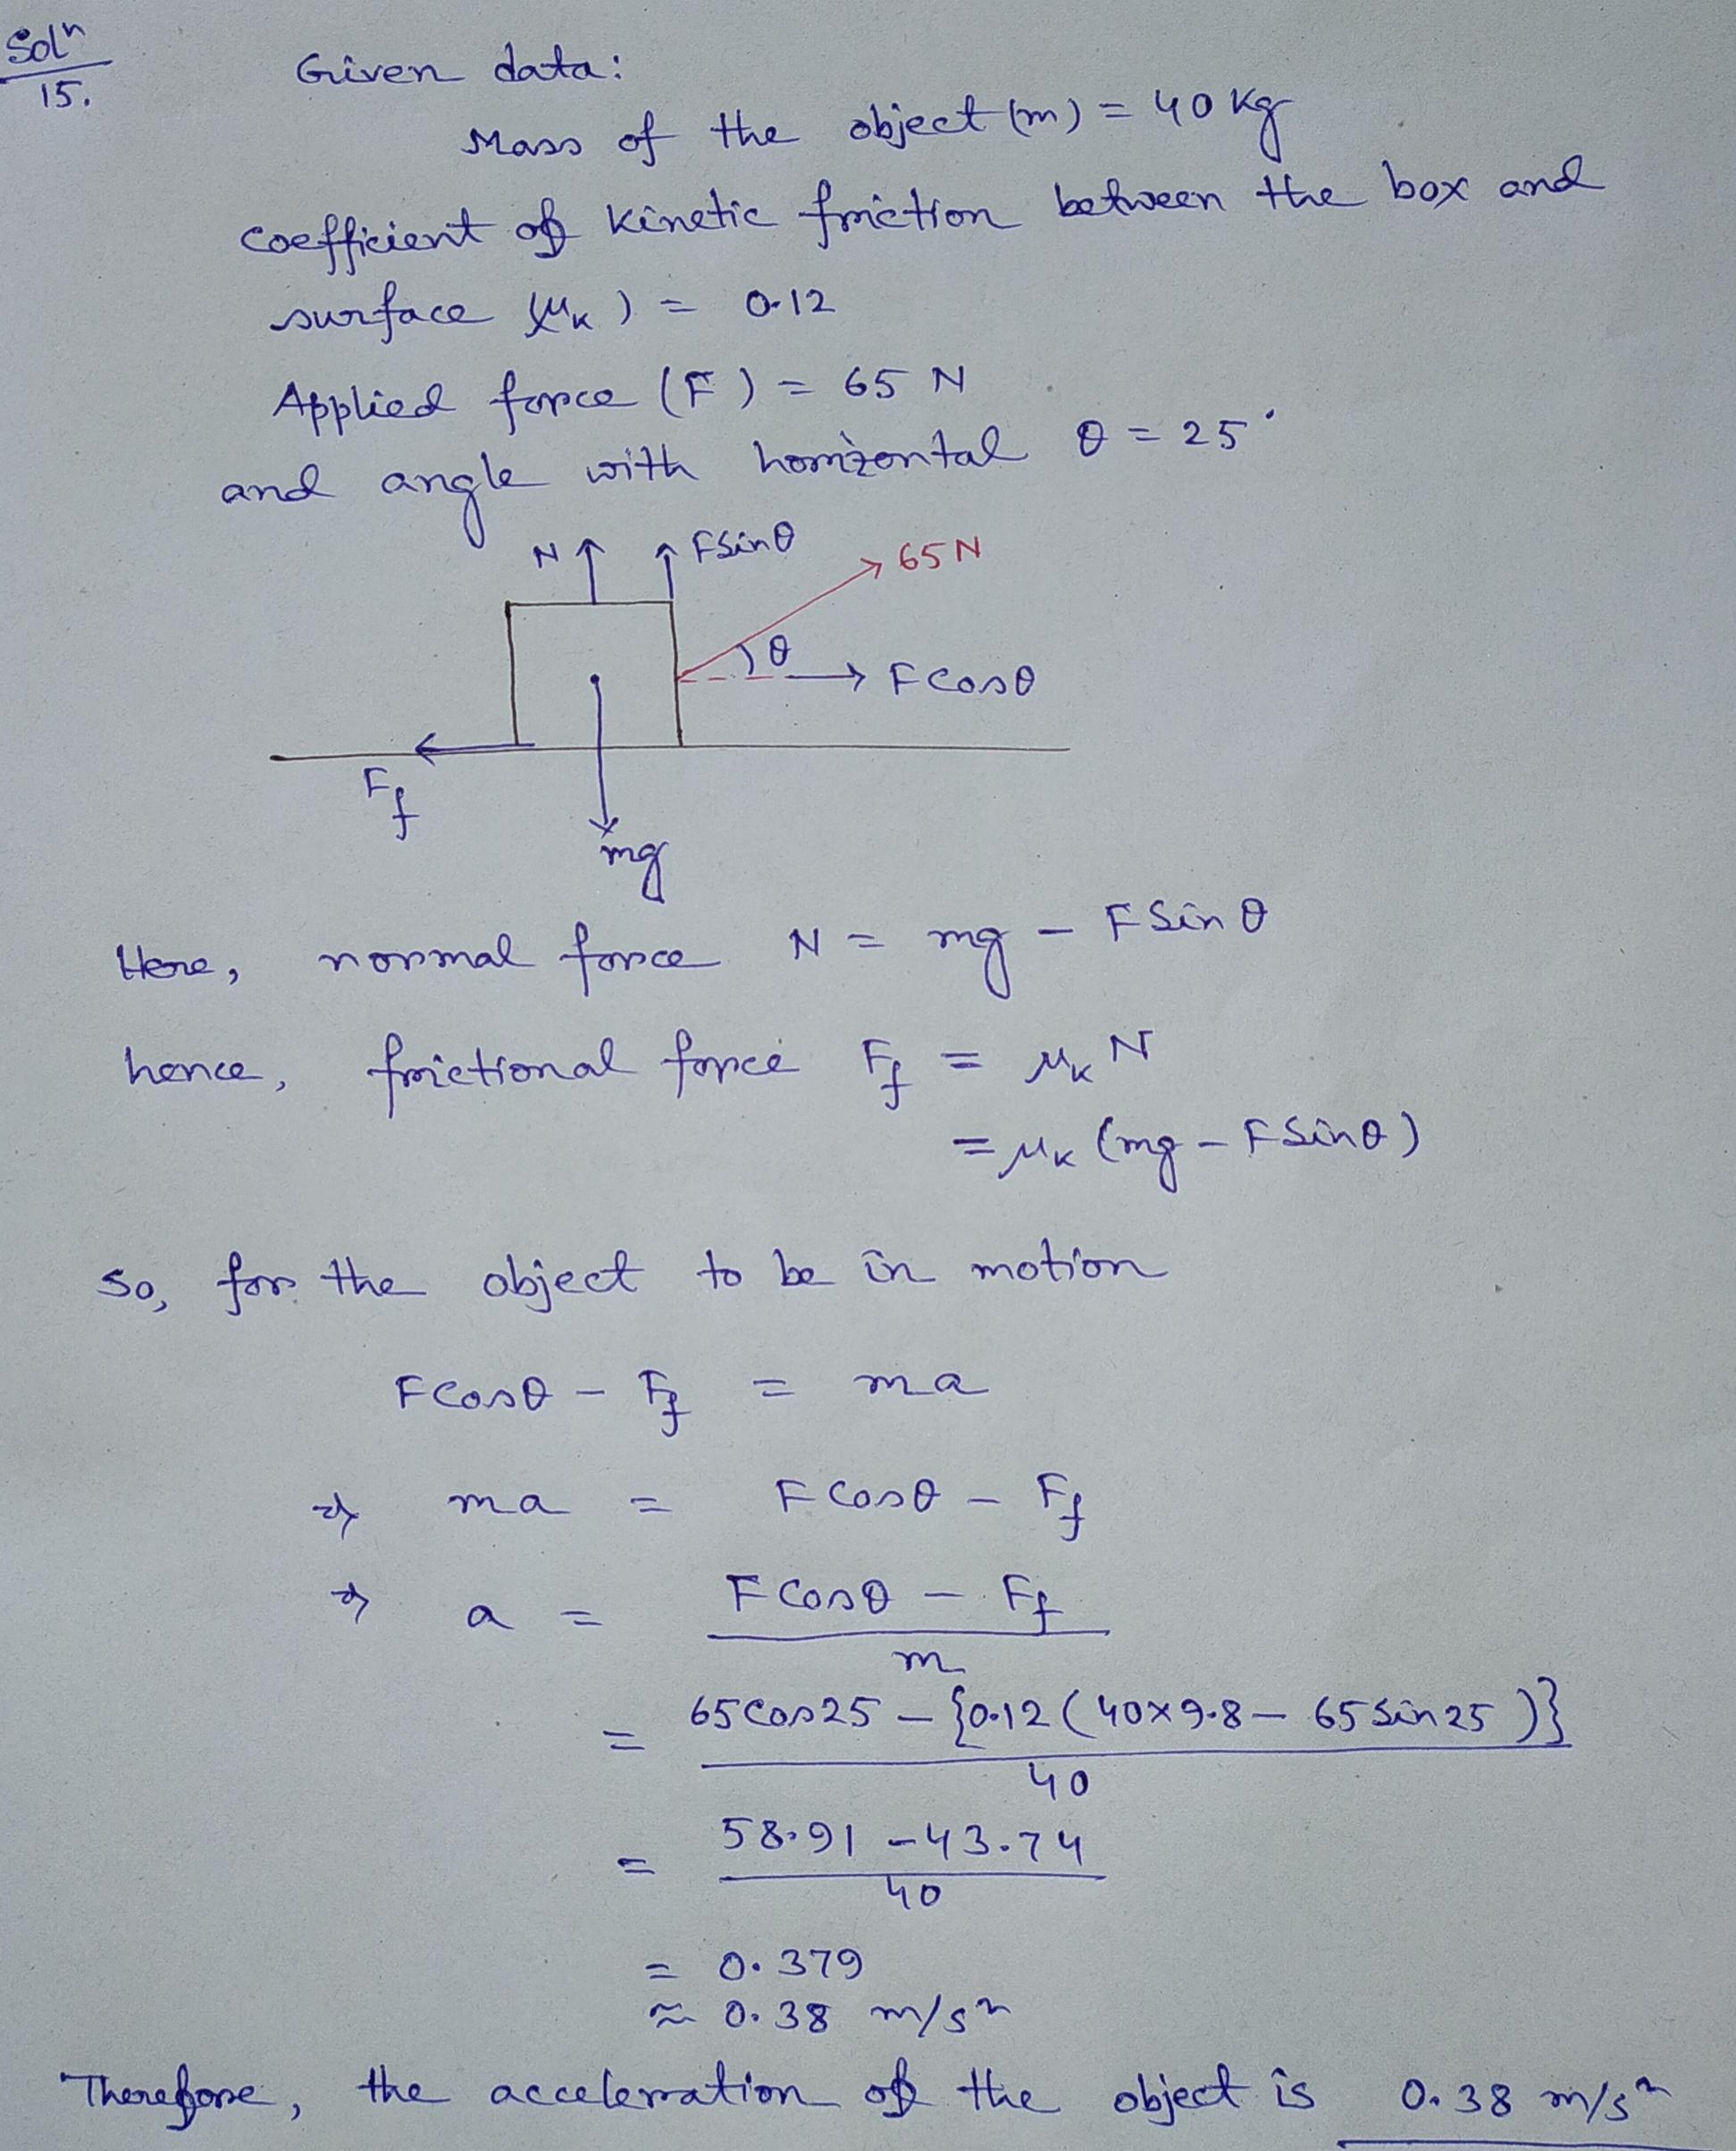 Solⁿ
15.
Given data:
Mass of the object (m) = 40 kg
coefficient of kinetic friction between the box and
surface (μk) = 0.12
Applied force (F) = 65 N
and angle with horizontal θ = 25°
N
F Sin θ
65 N
θ
F Cos θ
Ff
mg
Here, normal force N = mg - F Sin θ
hence, frictional force Ff = μk N
= μk (mg - F Sin θ)
So, for the object to be in motion
F Cos θ - Ff = ma
⇒ ma = F Cos θ - Ff
⇒ a = F Cos θ - Ff
m
= 65 Cos 25 - {0.12 (40×9.8 - 65 Sin 25)}
40
= 58.91 - 43.74
40
= 0.379
≈ 0.38 m/s²
Therefore, the acceleration of the object is 0.38 m/s²